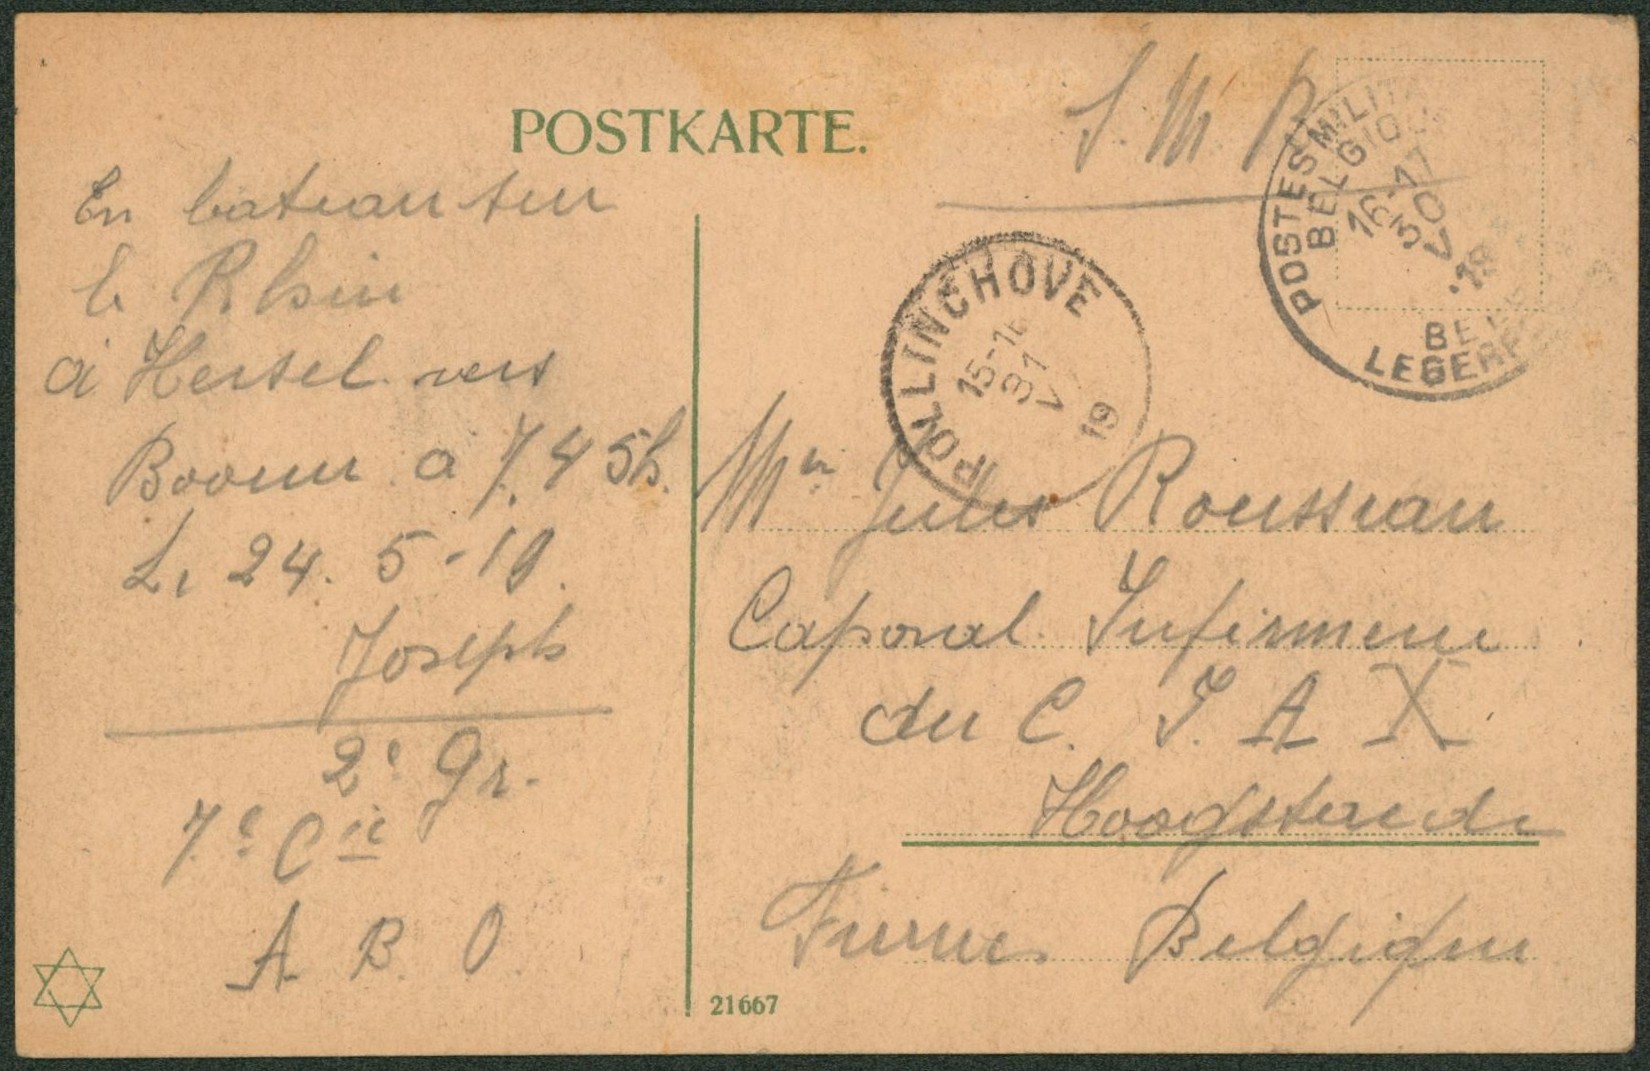 POSTKARTE.
S. M
POSTES MILITA
BELGIQU
16-17
30
V
19
BE
LEGERP
POLLINCHOVE
15-16
31
V
19
En bateau sur
le Rhin
à Hersel vers
Boonn a 7.45h.
Le 24. 5-19.
Joseph
2e Gr.
7e Cie
A B O
Mr Jules Rousseau
Caporal Infirmier
du C. I. A X
Hoogstaede
Furnes Belgique
21667